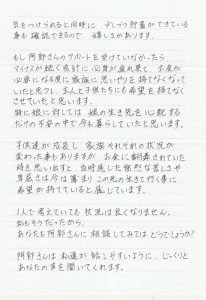 気をつけられると同時に 少しづつ貯蓄ができている
事も確認できるので 嬉しさがあります。
もし阿部さんのサポートを受けていなかったら
マイナスが続く家計に 心身が疲れ果て、お金が
必要になる度に家族に思いやりを持てなくなって
いたと思うし 主人と子供たちにも希望を持てなく
させていたと思います。
特に娘に対しては 娘の生き先を心配する
だけの不安の中で今も暮らしていたと思います。
子供達が成長し 家族それぞれの状況が
変わった事もありますが お金に翻弄されていた
時を思い出すと 当時感じた強烈な苦しさや
貧窮さは今は薄まり この先の生きて行く事に
希望が持てていると感じています。
1人で考えていても 状況は良くなりません。
私もそうだったから。
あなたも阿部さんに 相談してみては どうでしょうか？
阿部さんは 私達が話しやすいように、じっくりと
あなたの声を聞いてくれます。